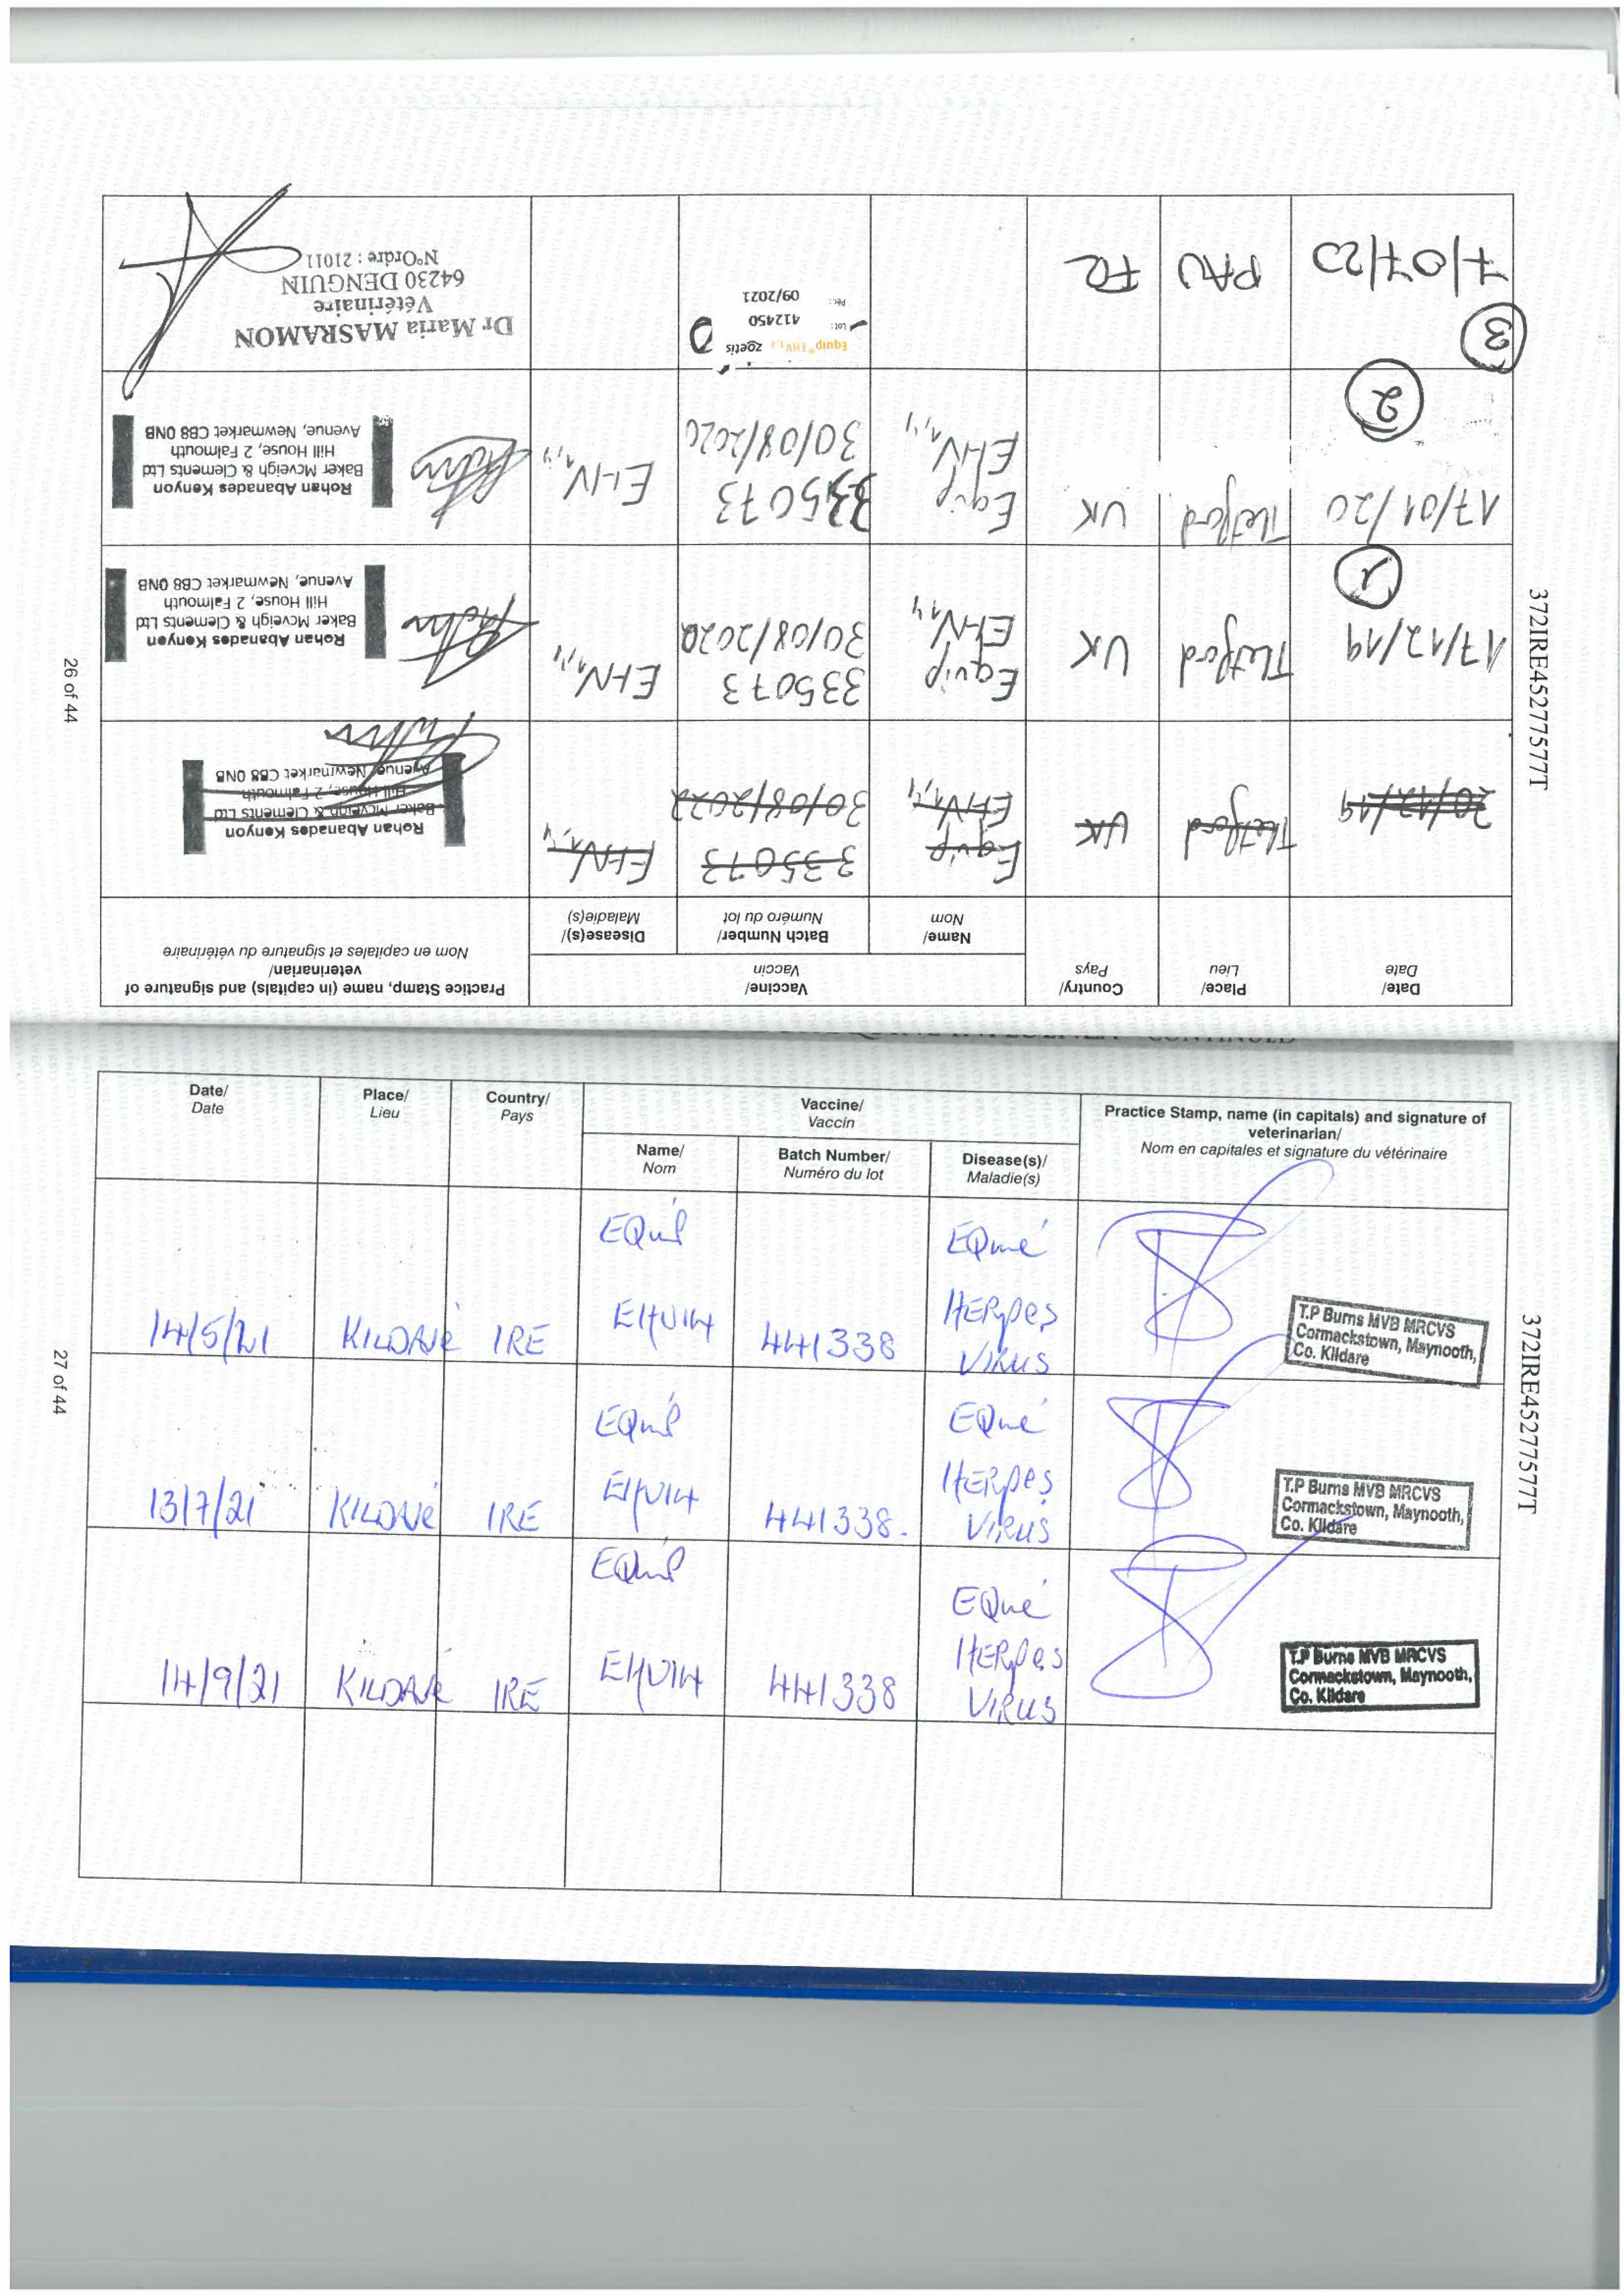 Date/
Date
Place/
Lieu
Country/
Pays
Vaccine/
Vaccin
Name/
Nom
Batch Number/
Numéro du lot
Disease(s)/
Maladie(s)
Practice Stamp, name (in capitals) and signature of
veterinarian/
Nom en capitales et signature du vétérinaire
20/12/19 Thetford UK Equip EHV1,4 335073 30/08/2022 EHV1,4
Rohan Abanades Kenyon
Baker Mcveigh & Clements Ltd
Hill House, 2 Falmouth
Avenue, Newmarket CB8 0NB
1
17/12/19 Thetford UK Equip EHV1,4 335073 30/08/2020 EHV1,4
Rohan Abanades Kenyon
Baker Mcveigh & Clements Ltd
Hill House, 2 Falmouth
Avenue, Newmarket CB8 0NB
2
17/01/20 Thetford UK Equip EHV1,4 335073 30/08/2020 EHV1,4
Rohan Abanades Kenyon
Baker Mcveigh & Clements Ltd
Hill House, 2 Falmouth
Avenue, Newmarket CB8 0NB
3
7/07/20 PAU FR
Equip® EHV1,4 zoetis
Lot: 412450
Pér.: 09/2021
Dr Maria MASRAMON
Vétérinaire
64230 DENGUIN
N°Ordre : 21011
26 of 44
372IRE45277577T
CONTINUED
Date/
Date
Place/
Lieu
Country/
Pays
Vaccine/
Vaccin
Name/
Nom
Batch Number/
Numéro du lot
Disease(s)/
Maladie(s)
Practice Stamp, name (in capitals) and signature of
veterinarian/
Nom en capitales et signature du vétérinaire
14/5/21 KILDARE IRE EQUIP EHV14 441338 EQINE HERPES VIRUS
T.P Burns MVB MRCVS
Cormackstown, Maynooth,
Co. Kildare
13/7/21 KILDARE IRE EQUIP EHV14 441338. EQINE HERPES VIRUS
T.P Burns MVB MRCVS
Cormackstown, Maynooth,
Co. Kildare
14/9/21 KILDARE IRE EQUIP EHV14 441338 EQINE HERPES VIRUS
T.P Burns MVB MRCVS
Cormackstown, Maynooth,
Co. Kildare
27 of 44
372IRE45277577T